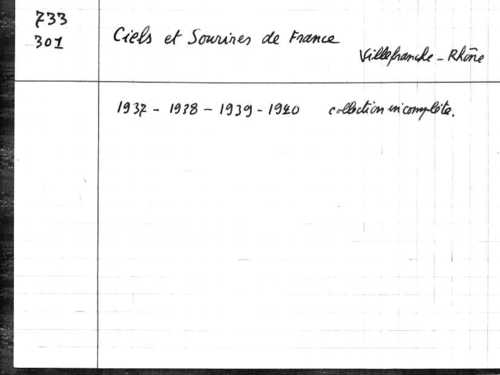 733
301
Ciels et Sourires de France
Villefranche - Rhône
1937 - 1938 - 1939 - 1940 collection incomplète.